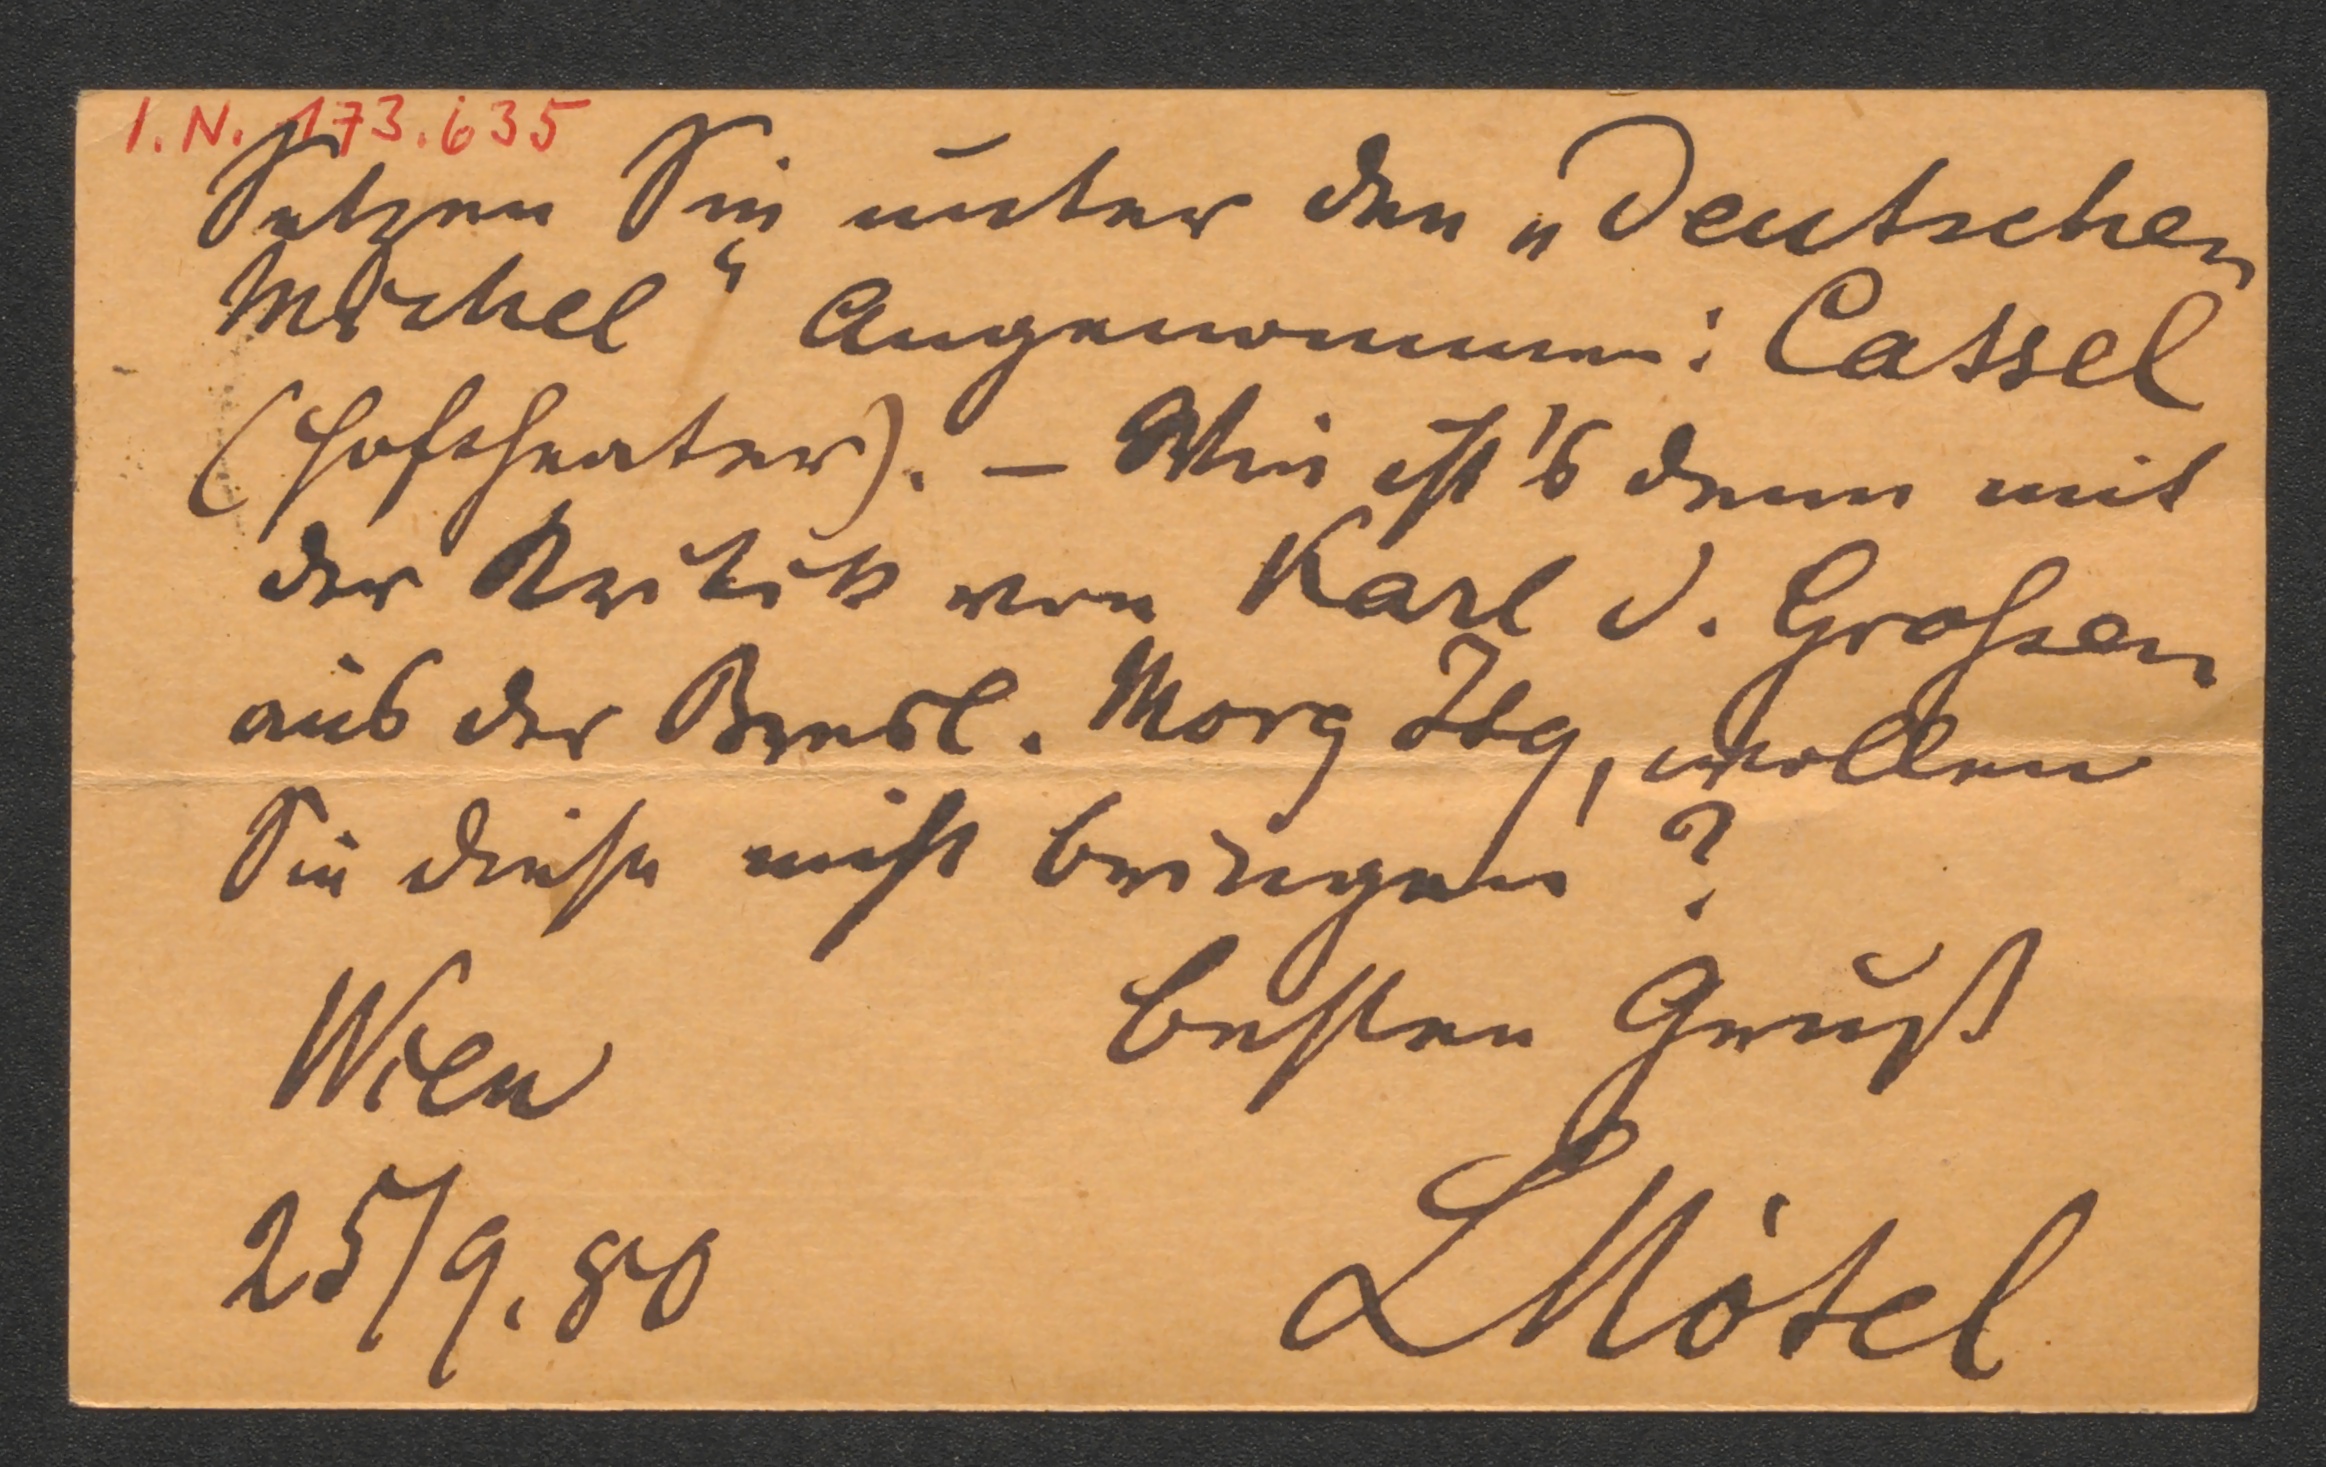 I. N. 173.635
Setzen Sie unter den „Deutschen
Michel“ Angenommen: Cassel
(Hoftheater). – Wie ist's denn mit
der Kritik von Karl d. Großen
aus der Bresl. Morg Ztg, wollen
Sie diese nicht bringen?
Besten Gruß
Wien
25/9. 80